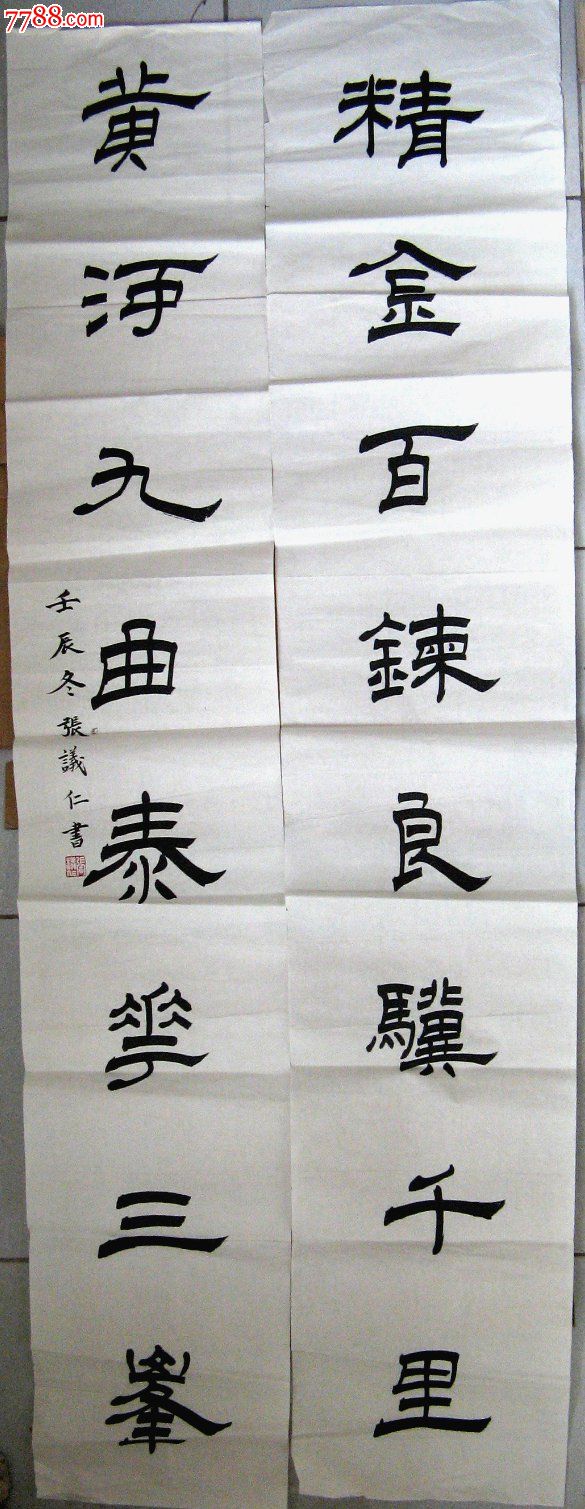 7788.com
精金百鍊良驥千里
黃河九曲泰華三峯
壬辰冬張議仁書